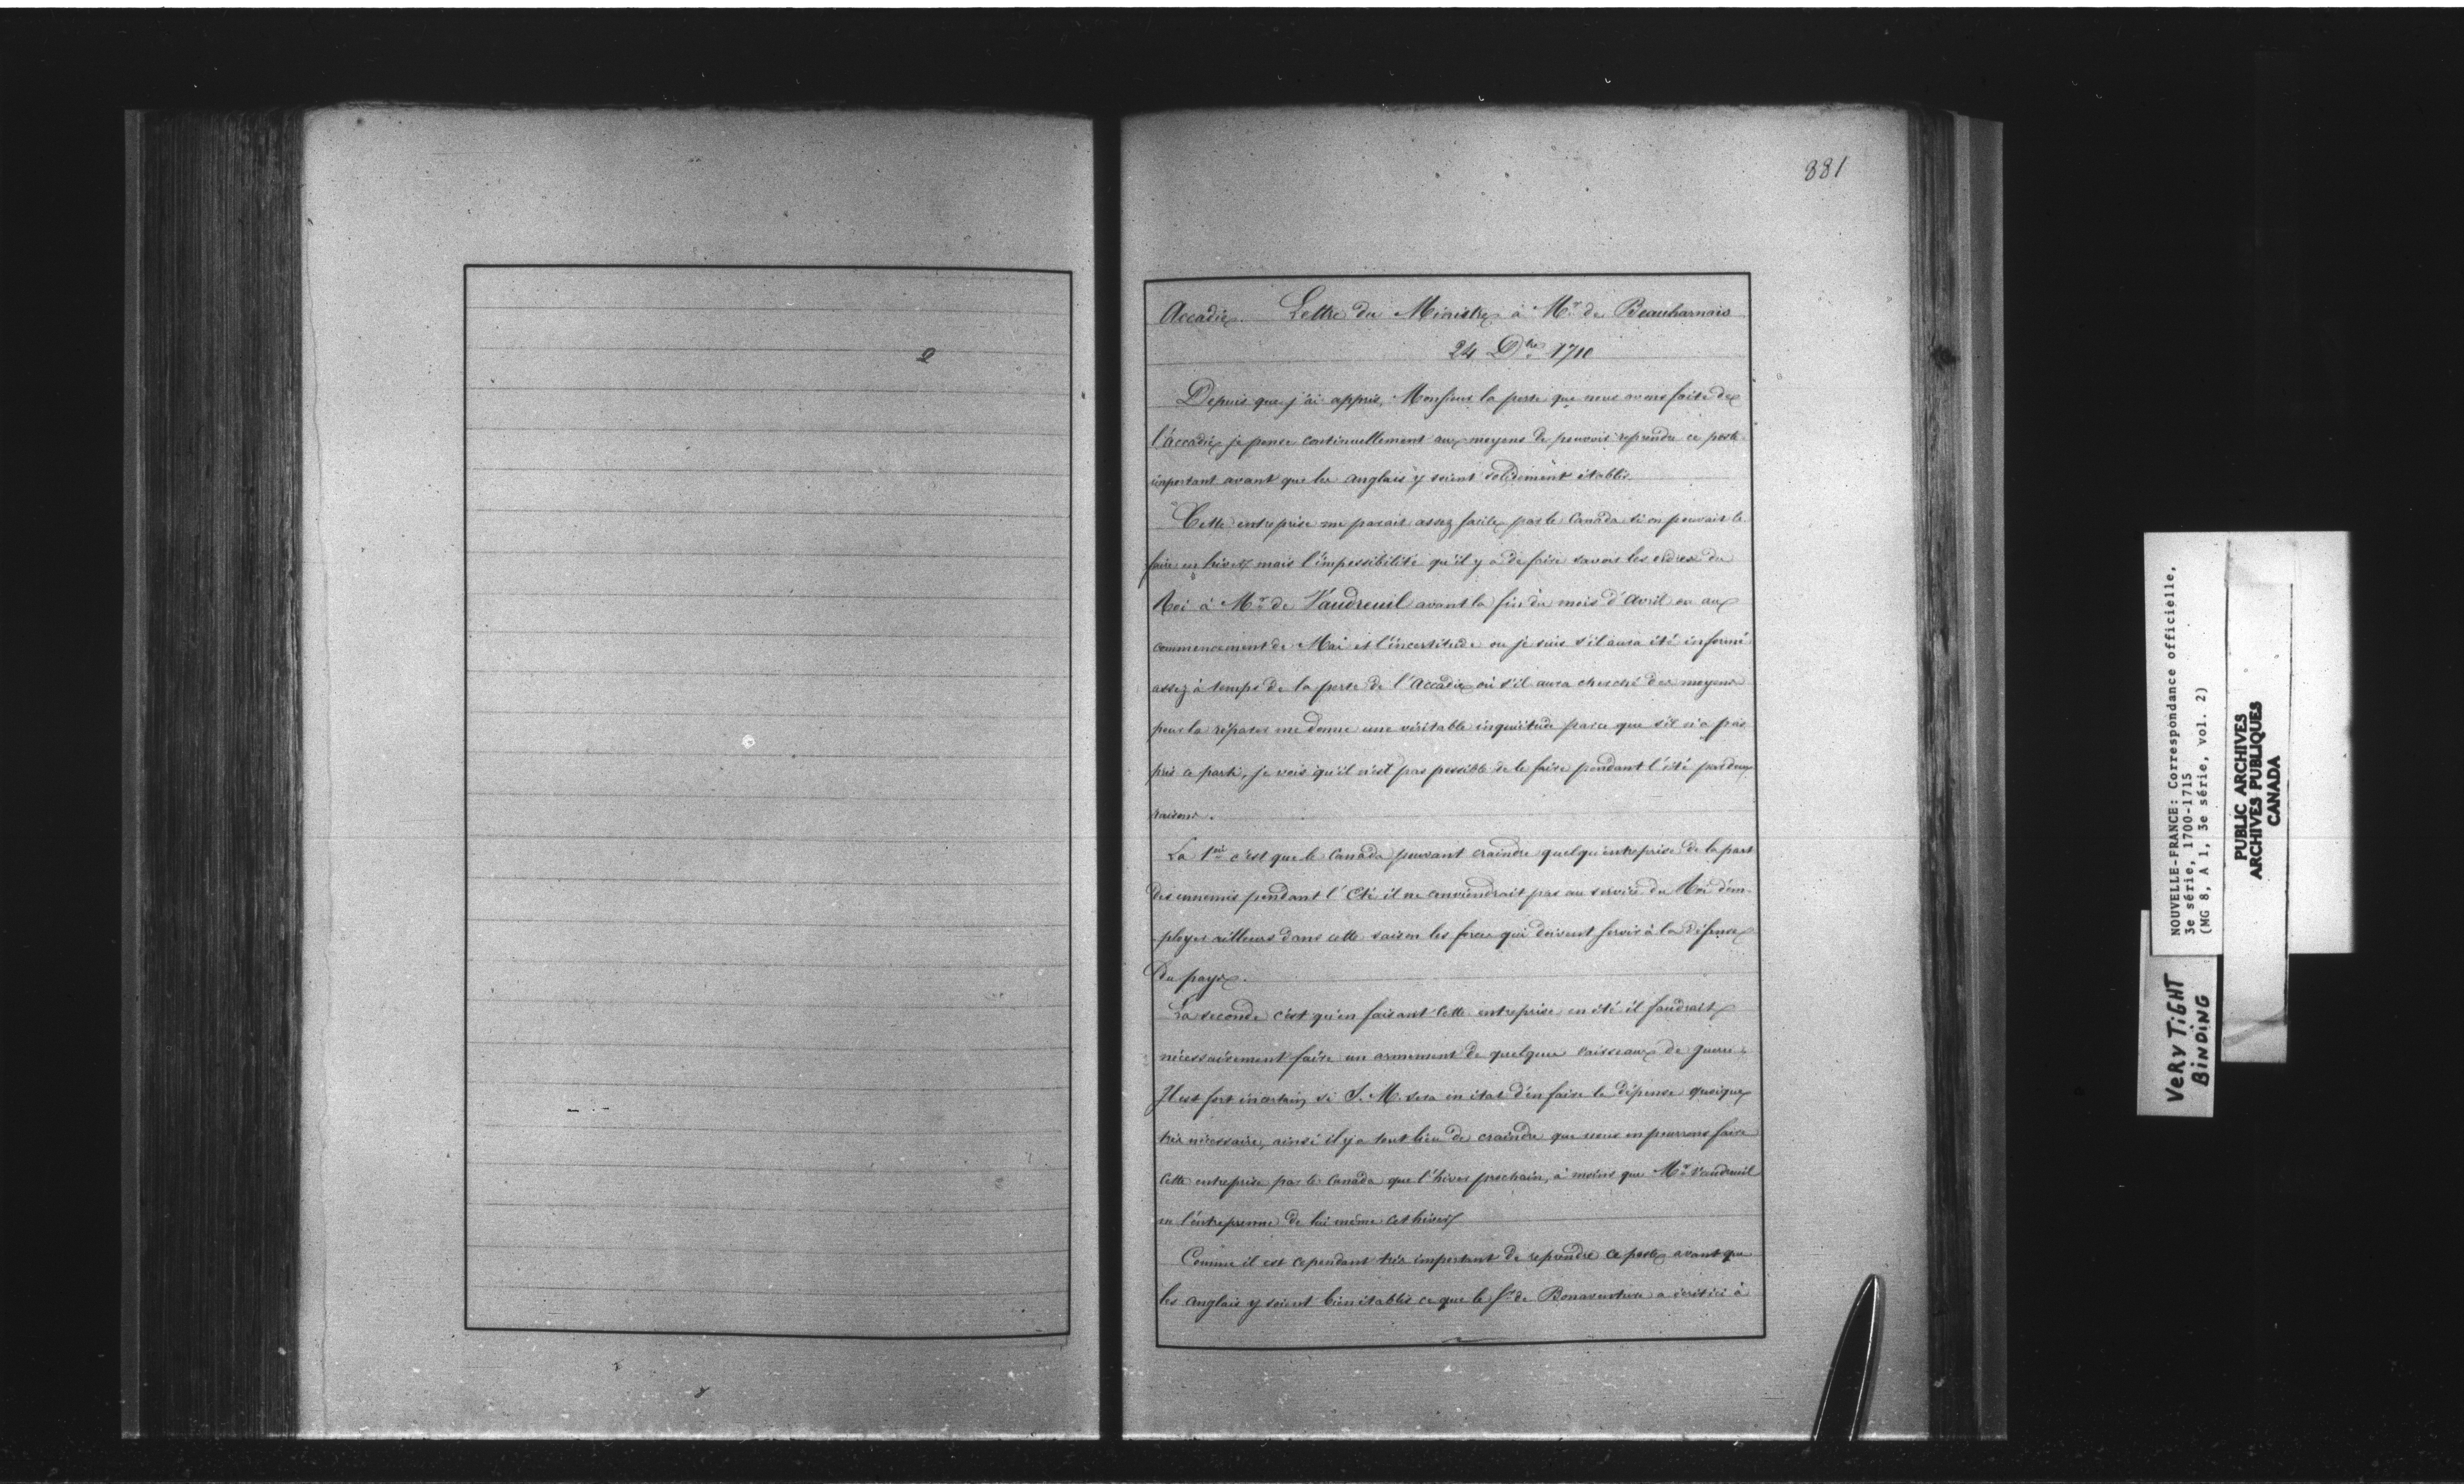 881
Accadie. Lettre du Ministre à Mr. de Beauharnais
24 Dbre 1710
Depuis que j'ai appris, Monsieur la perte que nous avons faite de
l'accadie je pense continuellement aux moyens de pouvoir reprendre ce poste
important avant que les anglais y soient solidement établis.
Cette entreprise me parait assez facile par le Canada si on pouvait le
faire en hiver mais l'impossibilité qu'il y a de faire savoir les ordres du
Roi à Mr. de Vaudreuil avant la fin du mois d'Avril ou au
commencement de Mai et l'incertitude ou je suis s'il aura été informé
assez à temps de la perte de l'Accadie où s'il aura cherché des moyens
pour la réparer me donne une véritable inquiétude parce que s'il n'a pas
pris ce parti, je vois qu'il n'est pas possible de le faire pendant l'été par deux
raisons.
La 1ere c'est que le Canada pouvant craindre quelqu'entreprise de la part
des ennemis pendant l'Eté il ne conviendrait pas au service du Roi d'em-
ployer ailleurs dans cette saison les forces qui doivent servir à la défense
du pays.
La seconde c'est qu'en faisant cette entreprise en été il faudrait
nécessairement faire un armement de quelques vaisseaux de guerre.
Il est fort incertain si S. M. sera en état d'en faire la dépense quoique
très nécessaire, ainsi il y a tout lieu de craindre que nous en pourrons faire
cette entreprise par le Canada que l'hiver prochain, à moins que Mr. Vaudreuil
ne l'entreprenne de lui même cet hiver
Comme il est cependant très important de reprendre ce poste avant que
les anglais y soient bien établis ce que le Sr. de Bonaventure a écrit ici à
NOUVELLE-FRANCE: Correspondance officielle,
3e série, 1700-1715
(MG 8, A 1, 3e série, vol. 2)
PUBLIC ARCHIVES
ARCHIVES PUBLIQUES
CANADA
VERY TIGHT
BINDING